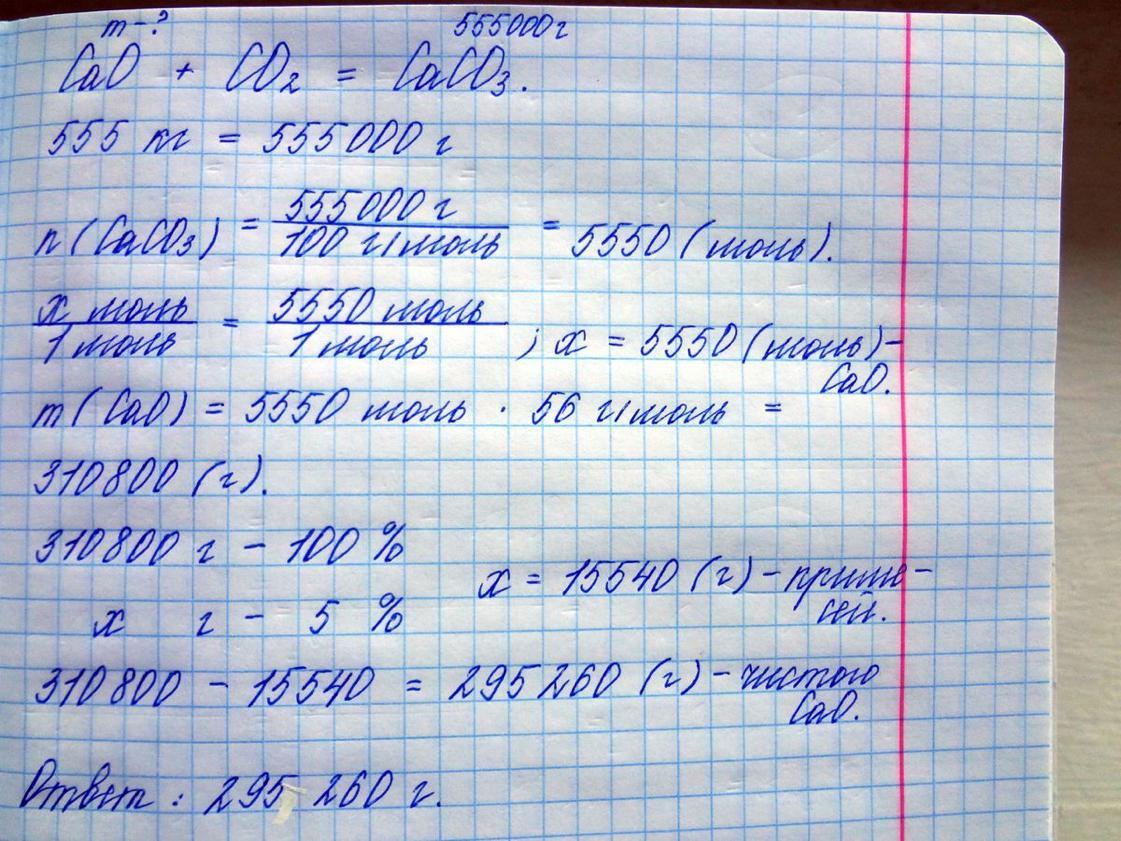 m-? 555000г
CaO + CO₂ = CaCO₃.
555 кг = 555000 г
n(CaCO₃) = 555000 г / 100 г/моль = 5550 (моль).
x моль / 1 моль = 5550 моль / 1 моль ; x = 5550 (моль) -
CaO.
m(CaO) = 5550 моль · 56 г/моль =
310800 (г).
310800 г - 100 %
x = 15540 (г) - приме-
сей.
x г - 5 %
310800 - 15540 = 295260 (г) - чистого
CaO.
Ответ: 295 260 г.